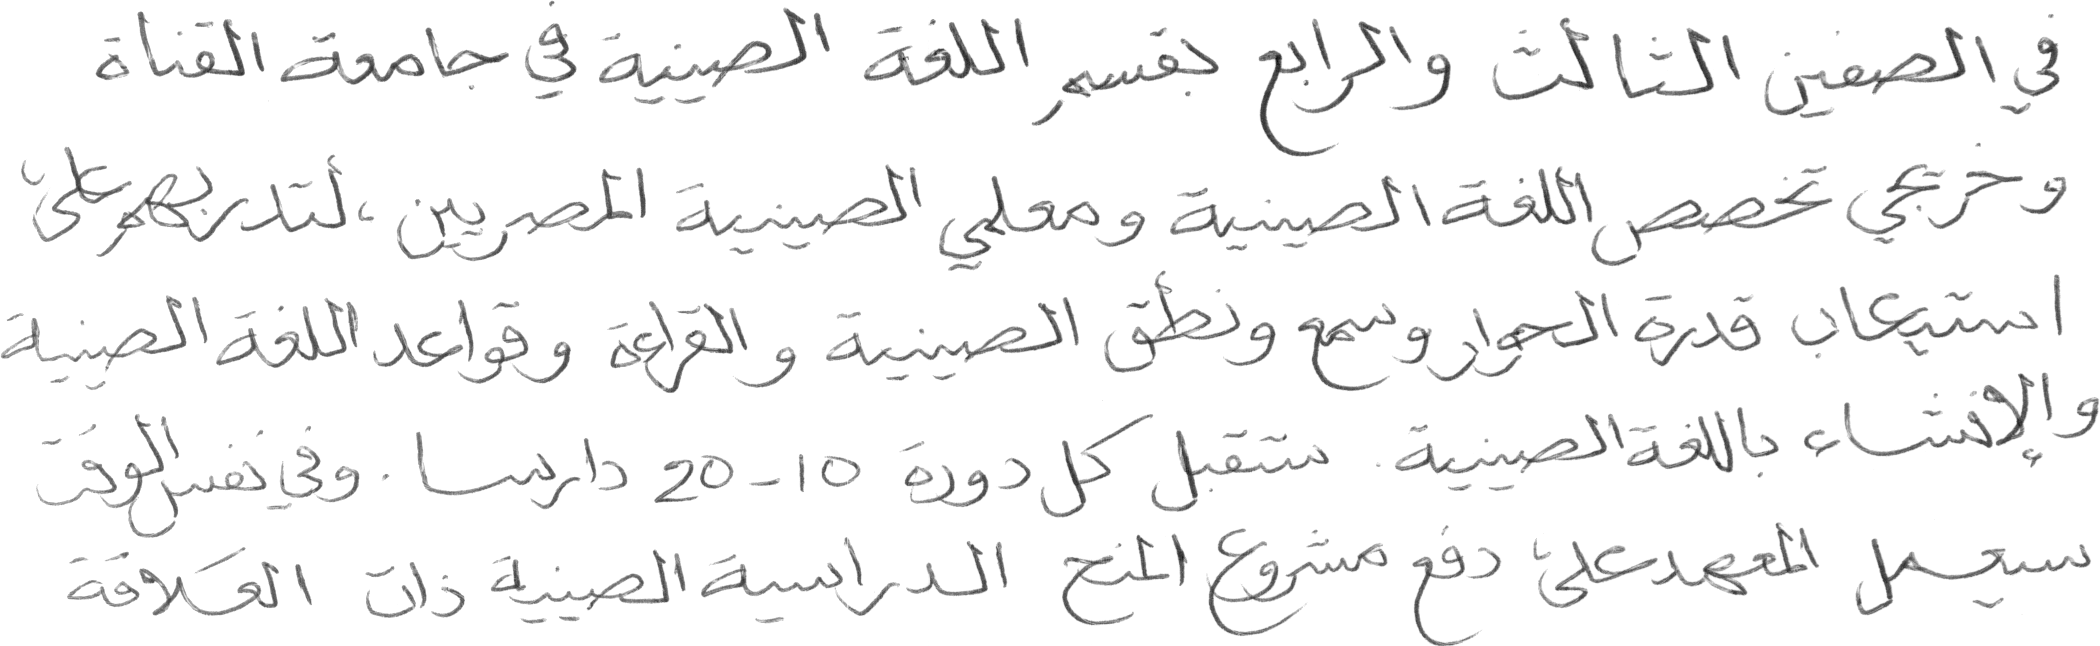 في الصفين الثالث والرابع بقسم اللغة الصينية في جامعة القناة
وخريجي تخصص اللغة الصينية ومعلمي الصينية المصريين، لتدربهم على
استيعاب قدرة الحوار وسمع ونطق الصينية والقراءة وقواعد اللغة الصينية
والإنشاء باللغة الصينية. ستقبل كل دورة 10-20 دارسا. وفي نفس الوقت
سيعمل المعهد على دفع مشروع المنح الدراسية الصينية ذات العلاقة